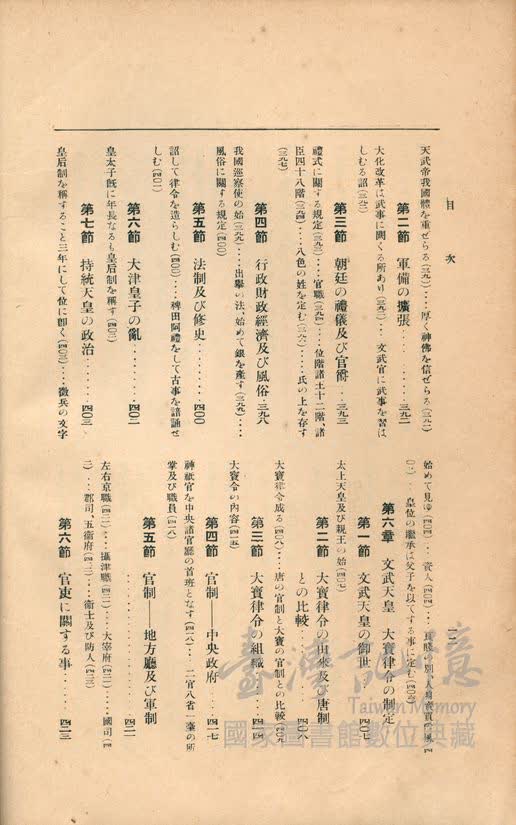 目次
天武帝我國體を重ぜらる(三九一)‥‥厚く神佛を信ぜらる(三九一)
第二節 軍備の擴張‥‥‥三九二
大化改革は武事に闕くる所あり(三九二)‥‥文武官に武事を習は
しむる詔(三九二)
第三節 朝廷の禮儀及び官衙‥‥三九三
禮式に關する規定(三九三)‥‥官職(三九四)‥‥位階諸王十二階、諸
臣四十八階(三九四)‥‥八色の姓を定む(三九六)‥‥氏の上を存す
(三九七)
第四節 行政財政經濟及び風俗 三九六
我國巡察使の始(三九九)‥‥出擧の法、始めて銀を產す(三九九)‥‥
風俗に關する規定(四〇〇)
第五節 法制及び修史‥‥‥四〇〇
詔して律令を造らしむ(四〇〇)‥‥稗田阿禮をして古事を諳誦せ
しむ(四〇一)
第六節 大津皇子の亂‥‥‥四〇二
皇太子旣に年長なるも皇后制を稱す(四〇三)
第七節 持統天皇の政治‥‥‥四〇三
皇后制を稱すること三年にして位に卽く(四〇三)‥‥徵兵の文字
始めて見ゆ(四〇四)‥‥資人(四〇四)‥‥
皇位の繼承は父子を以てする事に定む(四〇六)
第六章 文武天皇 大寶律令の制定
第一節 文武天皇の御世‥‥四〇七
太上天皇及び親王の始(四〇七)
第二節 大寶律令の由來及び唐制
との比較‥‥‥四〇八
大寶律令成る(四〇八)‥‥唐の官制と大寶の官制との比較(四〇九)
第三節 大寶律令の組織‥‥四一四
大寶令の內容(四一五)
第四節 官制――中央政府‥‥四一七
神祇官を中央諸官廳の首班となす(四一八)‥‥二官八省一臺の所
掌及び職員(四一八)
第五節 官制――地方廳及び軍制
‥‥‥四二一
左右京職(四二一)‥‥攝津職(四二一)‥‥大宰府(四二二)‥‥國司(四
二二)‥‥郡司、五衞府(四二三)‥‥衞士及び防人(四二三)
第六節 官吏に關する事‥‥四二三
臺灣記憶
Taiwan Memory
國家圖書館數位典藏